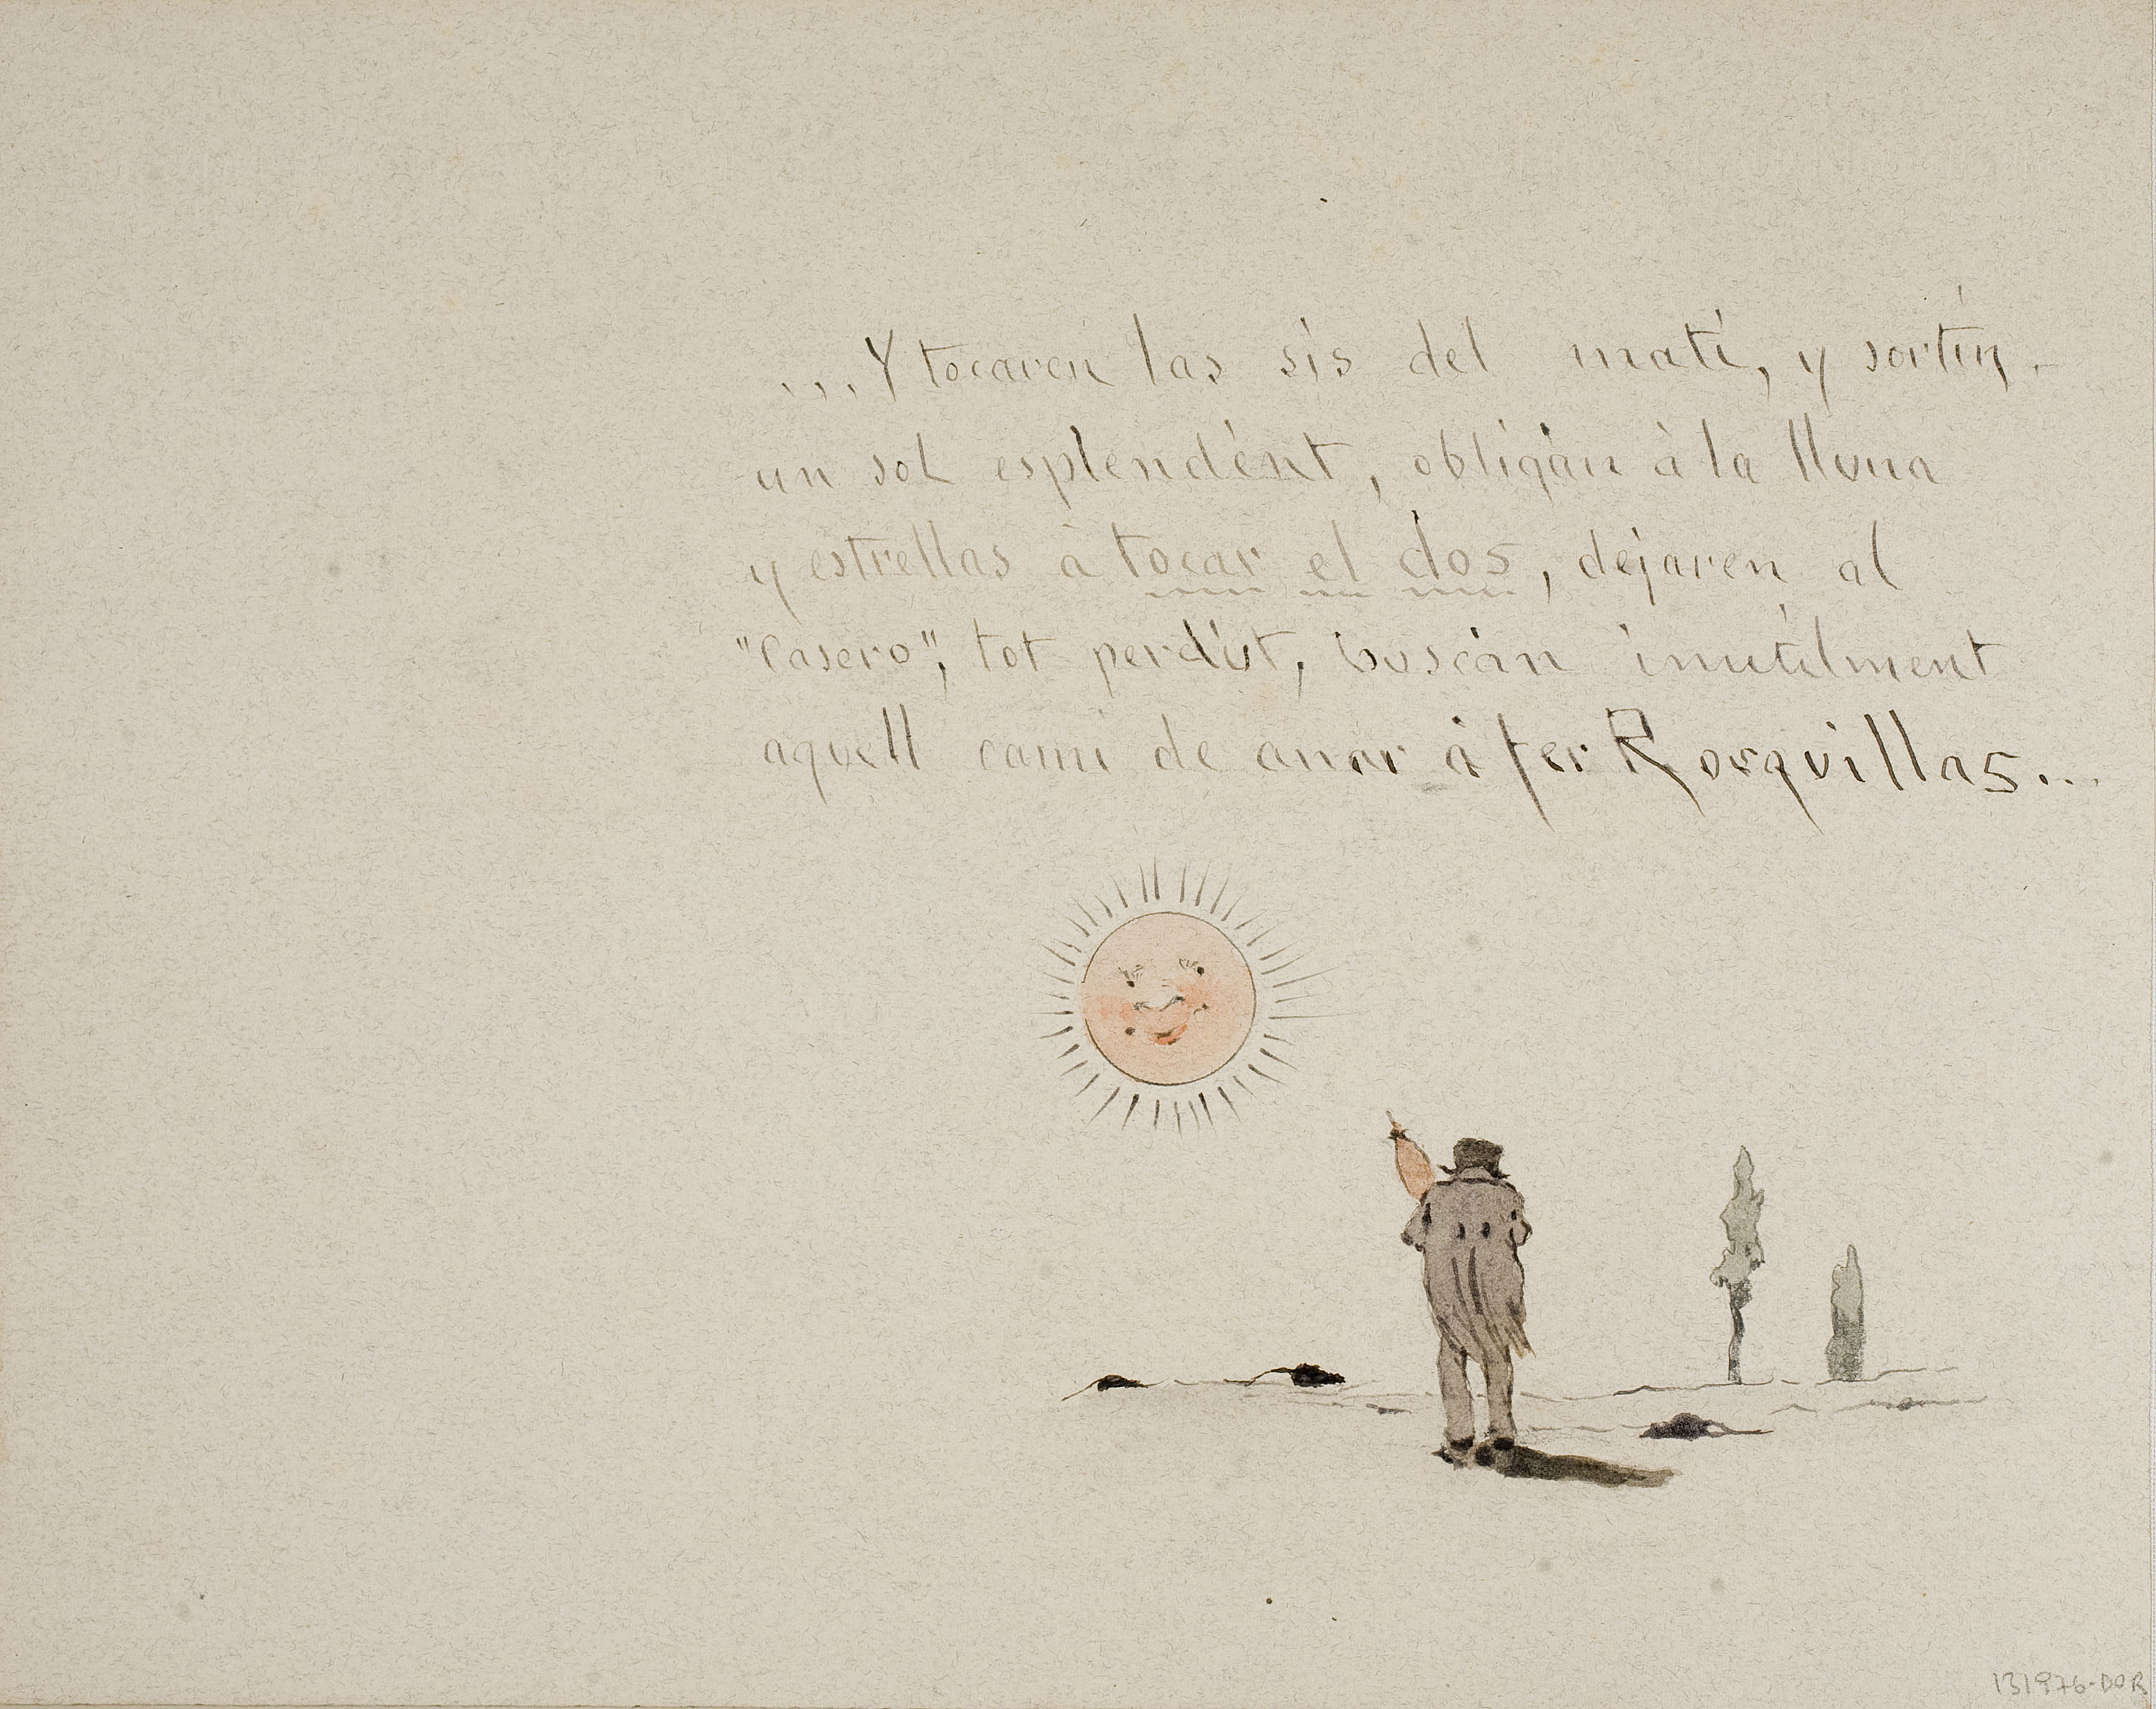 ...Y tocaren las sis del matí, y sortin
un sol esplendént, obligán à la lluna
y estrellas à tocar el dos, dejaren al
"Casero", tot perdút, buscán inutilment
aquell camí de anar à fer Rosquillas...
131976-DOR